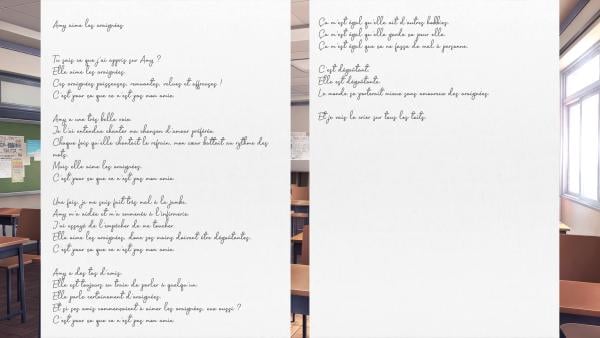 Amy aime les araignées
Tu sais ce que j'ai appris sur Amy ?
Elle aime les araignées.
Ces araignées poisseuses, remuantes, velues et affreuses !
C'est pour ça que ce n'est pas mon amie.
Amy a une très belle voix.
Je l'ai entendue chanter ma chanson d'amour préférée.
Chaque fois qu'elle chantait le refrain, mon cœur battait au rythme des
mots.
Mais elle aime les araignées.
C'est pour ça que ce n'est pas mon amie.
Une fois, je me suis fait très mal à la jambe.
Amy m'a aidée et m'a emmenée à l'infirmerie.
J'ai essayé de l'empêcher de me toucher.
Elle aime les araignées, donc ses mains doivent être dégoûtantes.
C'est pour ça que ce n'est pas mon amie.
Amy a des tas d'amis.
Elle est toujours en train de parler à quelqu'un.
Elle parle certainement d'araignées.
Et si ses amis commençaient à aimer les araignées, eux aussi ?
C'est pour ça que ce n'est pas mon amie.
Ça m'est égal qu'elle ait d'autres hobbies.
Ça m'est égal qu'elle garde ça pour elle.
Ça m'est égal que ça ne fasse de mal à personne.
C'est dégoûtant.
Elle est dégoûtante.
Le monde se porterait mieux sans amoureux des araignées.
Et je vais le crier sur tous les toits.